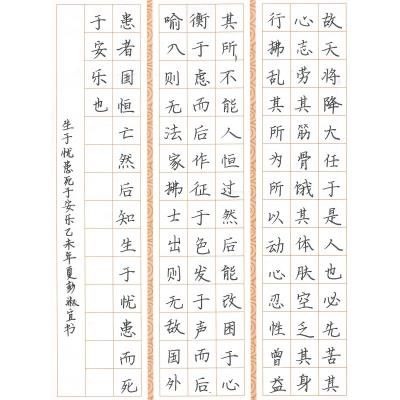 故天将降大任于是人也必先苦其
心志劳其筋骨饿其体肤空乏其身
行拂乱其所为所以动心忍性曾益
其所不能人恒过然后能改困于心
衡于虑而后作征于色发于声而后
喻入则无法家拂士出则无敌国外
患者国恒亡然后知生于忧患而死
于安乐也
生于忧患死于安乐乙未年夏彭淑宜书